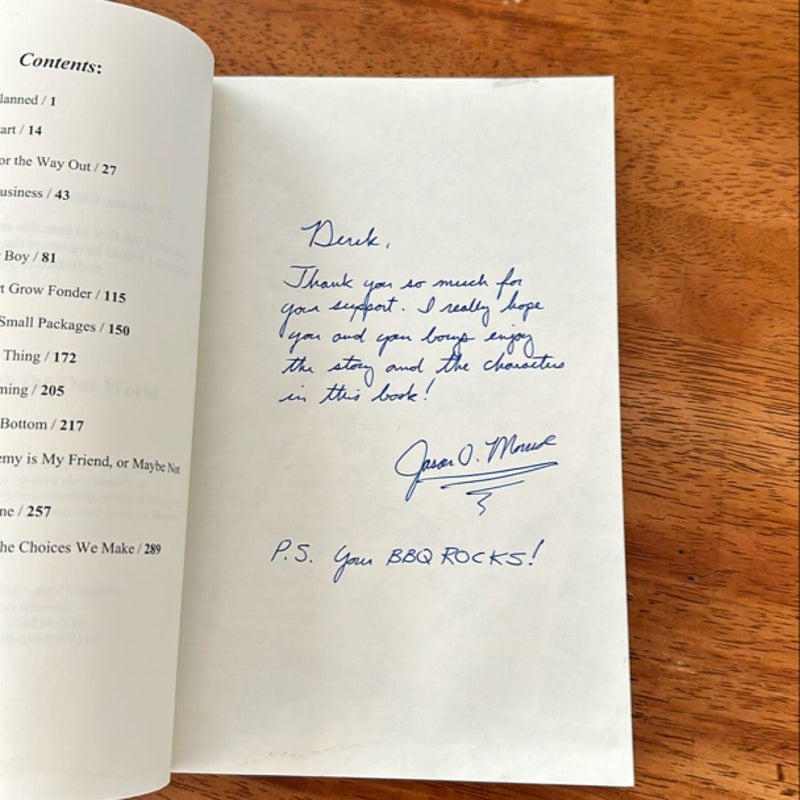 Contents:
lanned / 1
art / 14
or the Way Out / 27
usiness / 43
Boy / 81
t Grow Fonder / 115
Small Packages / 150
Thing / 172
ming / 205
Bottom / 217
emy is My Friend, or Maybe Not
ne / 257
he Choices We Make / 289
Derek,
Thank you so much for
your support. I really hope
you and your boys enjoy
the story and the characters
in this book!
Jason D.
P.S. Your BBQ ROCKS!